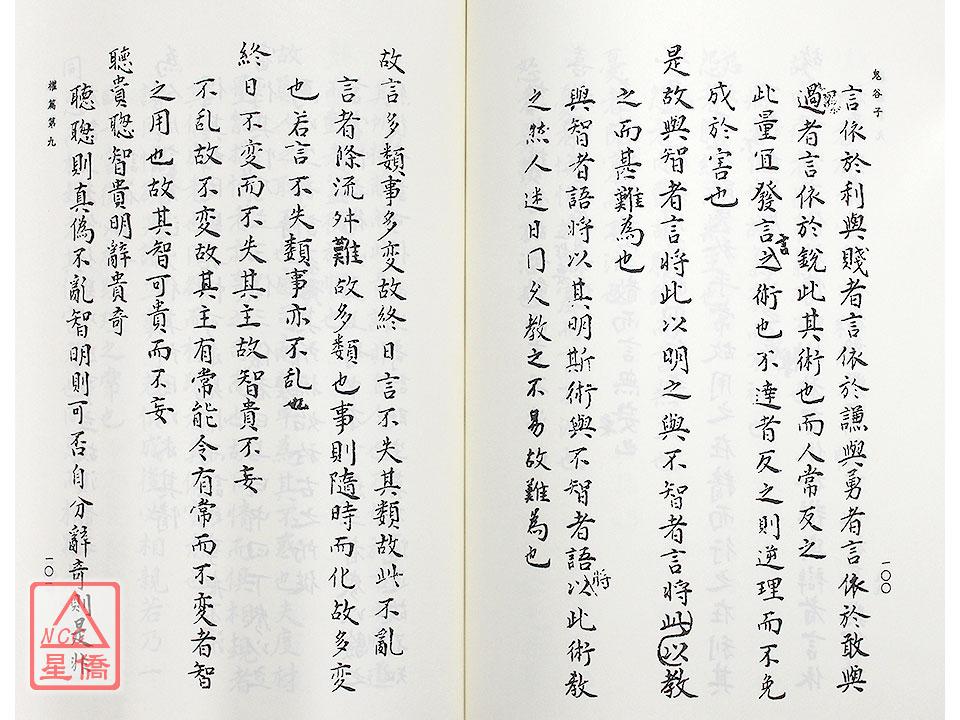 鬼谷子
言依於利與賤者言依於謙與勇者言依於敢與
過者言依於銳此其術也而人常反之
此量宜發言之術也不達者反之則逆理而不免
言
成於害也
是故與智者言將此以明之與不智者言將此以教
之而甚難為也
與智者語將以其明斯術與不智者語以此術教
將
之然人迷日久教之不易故難為也
一〇〇
故言多類事多變故終日言不失其類故此不亂
言者條流舛難故多類也事則隨時而化故多變
也若言不失類事亦不乱也
終日不變而不失其主故智貴不妄
不乱故不变故其主有常能令有常而不变者智
之用也故其智可貴而不妄
聽貴聰智貴明辭貴奇
聽聰則真偽不亂智明則可否自分辭奇則是非
權篇第九
一〇
NC
星僑